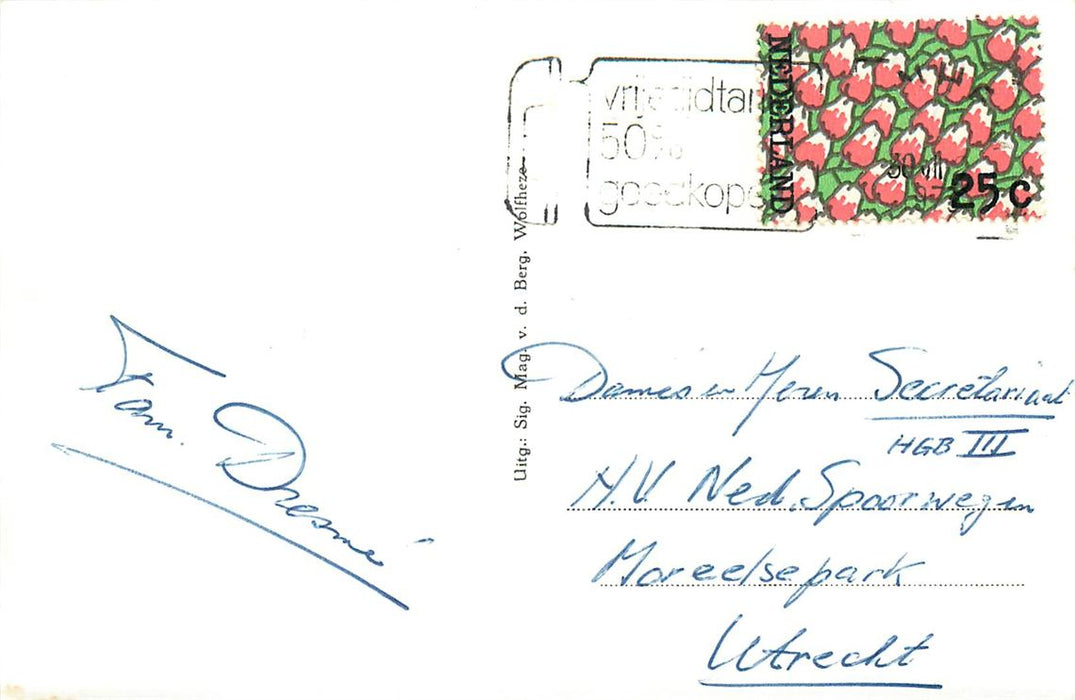 vrijetijdtar
50%
goedkope
NEDERLAND
30 VII
25 c
Uitg.: Sig. Mag. v. d. Berg, Wolfheze
Fam. Dresmé
Dames en Heren Secretariaat
HGB III
H.V. Ned. Spoorwegen
Moreelsepark
Utrecht